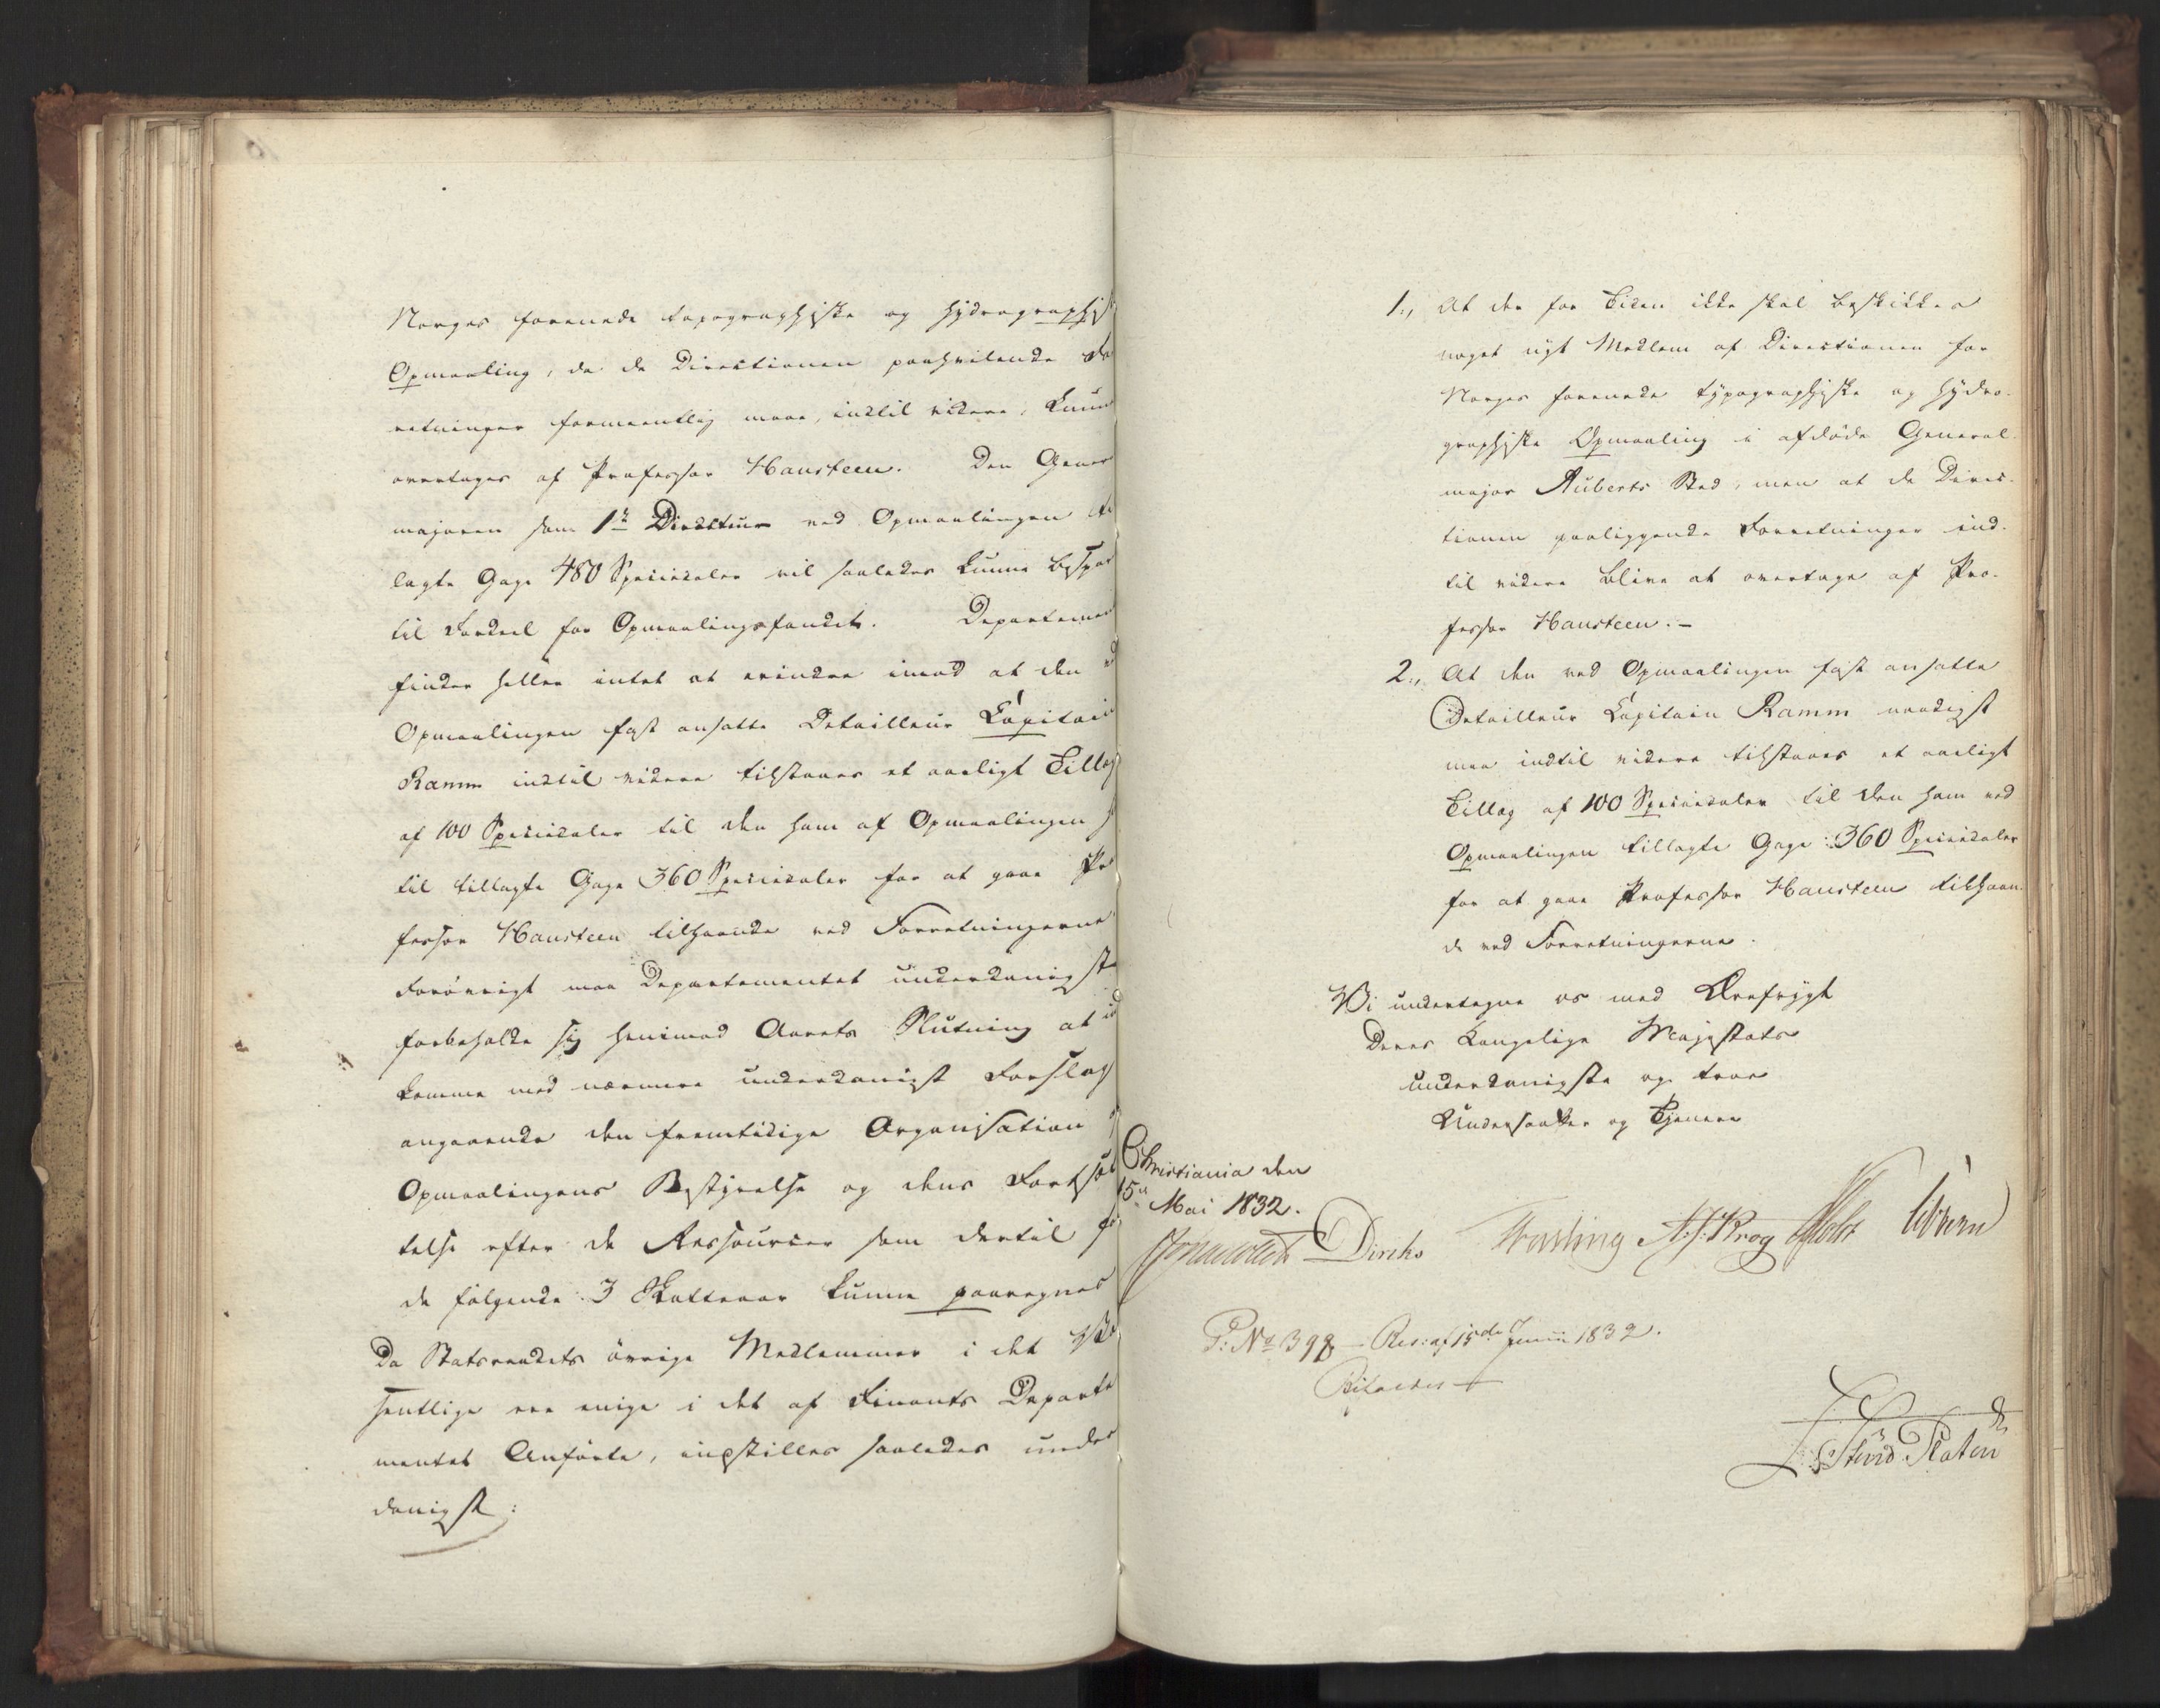 Norges forenede topographiske og hydrographisk
Opmaaling, da de Direktionen paahvilende For
retninger formeentlig maae, indtil videre, kunne
overtages af Professor Hansteen. Den General
majoren som 1ste Direkteur ved Opmaalingen til
lagte Gage 480 Speciedaler vil saaledes kunne bespar
til Fordeel for Opmaalingsfondet. Departemen
finder heller intet at erindre imod at den ved
Opmaalingen fast ansatte Detailleur Capitain
Ramm indtil videre tilstaaes et aarligt Tillæg
af 100 Speciedaler til den ham af Opmaalingen
til tillagte Gage 360 Speciedaler for at gaae Pro
fessor Hansteen tilhaande ved Forretningerne
Forøvrigt maa Departementet underdanigst
forbeholde sig henimod Aarets Slutning at ind
komme med nærmere underdanigst Forslag
angaaende den fremtidige Organisation
Opmaalingens Bestyrelse og dens Fortsæt
telse efter de Ressourcer som dertil for
de følgende 3 Skatteaar kunne paaregnes
Da Statsraadets øvrige Medlemmer i det Væ
sentlige ere enige i det af Finants Departe
mentet Anførte, indstilles saaledes under
danigst:
1., At der for Tiden ikke skal beskikkes
noget nyt Medlem af Directionen for
Norges forenede typographiske og hydro-
graphiske Opmaaling i afdøde General-
major Auberts Sted, men at de Direc-
tionen paaliggende Forretninger ind-
til videre blive at overtage af Pro-
fessor Hansteen.-
2., At den ved Opmaalingen fast ansatte
Detailleur Capitain Ramm naadigst
maa indtil videre tilstaaes et aarligt
Tillæg af 100 Speciedaler til den ham ved
Opmaalingen tillagte Gage: 360 Speciedaler
for at gaae Professor Hansteen tilhaan-
de ved Forretningerne.
Vi undertegne os med Ærefrygt
Deres Kongelige Majestæts
underdanigste og troe
Undersaatter og Tjenere
Christiania den
15de Mai 1832.
J Collett Diriks Fasting A.J. Krog Holst Vibe
P: No 398 - Res: af 15de Junii 1832.
Bifaldes
Sturd Platen